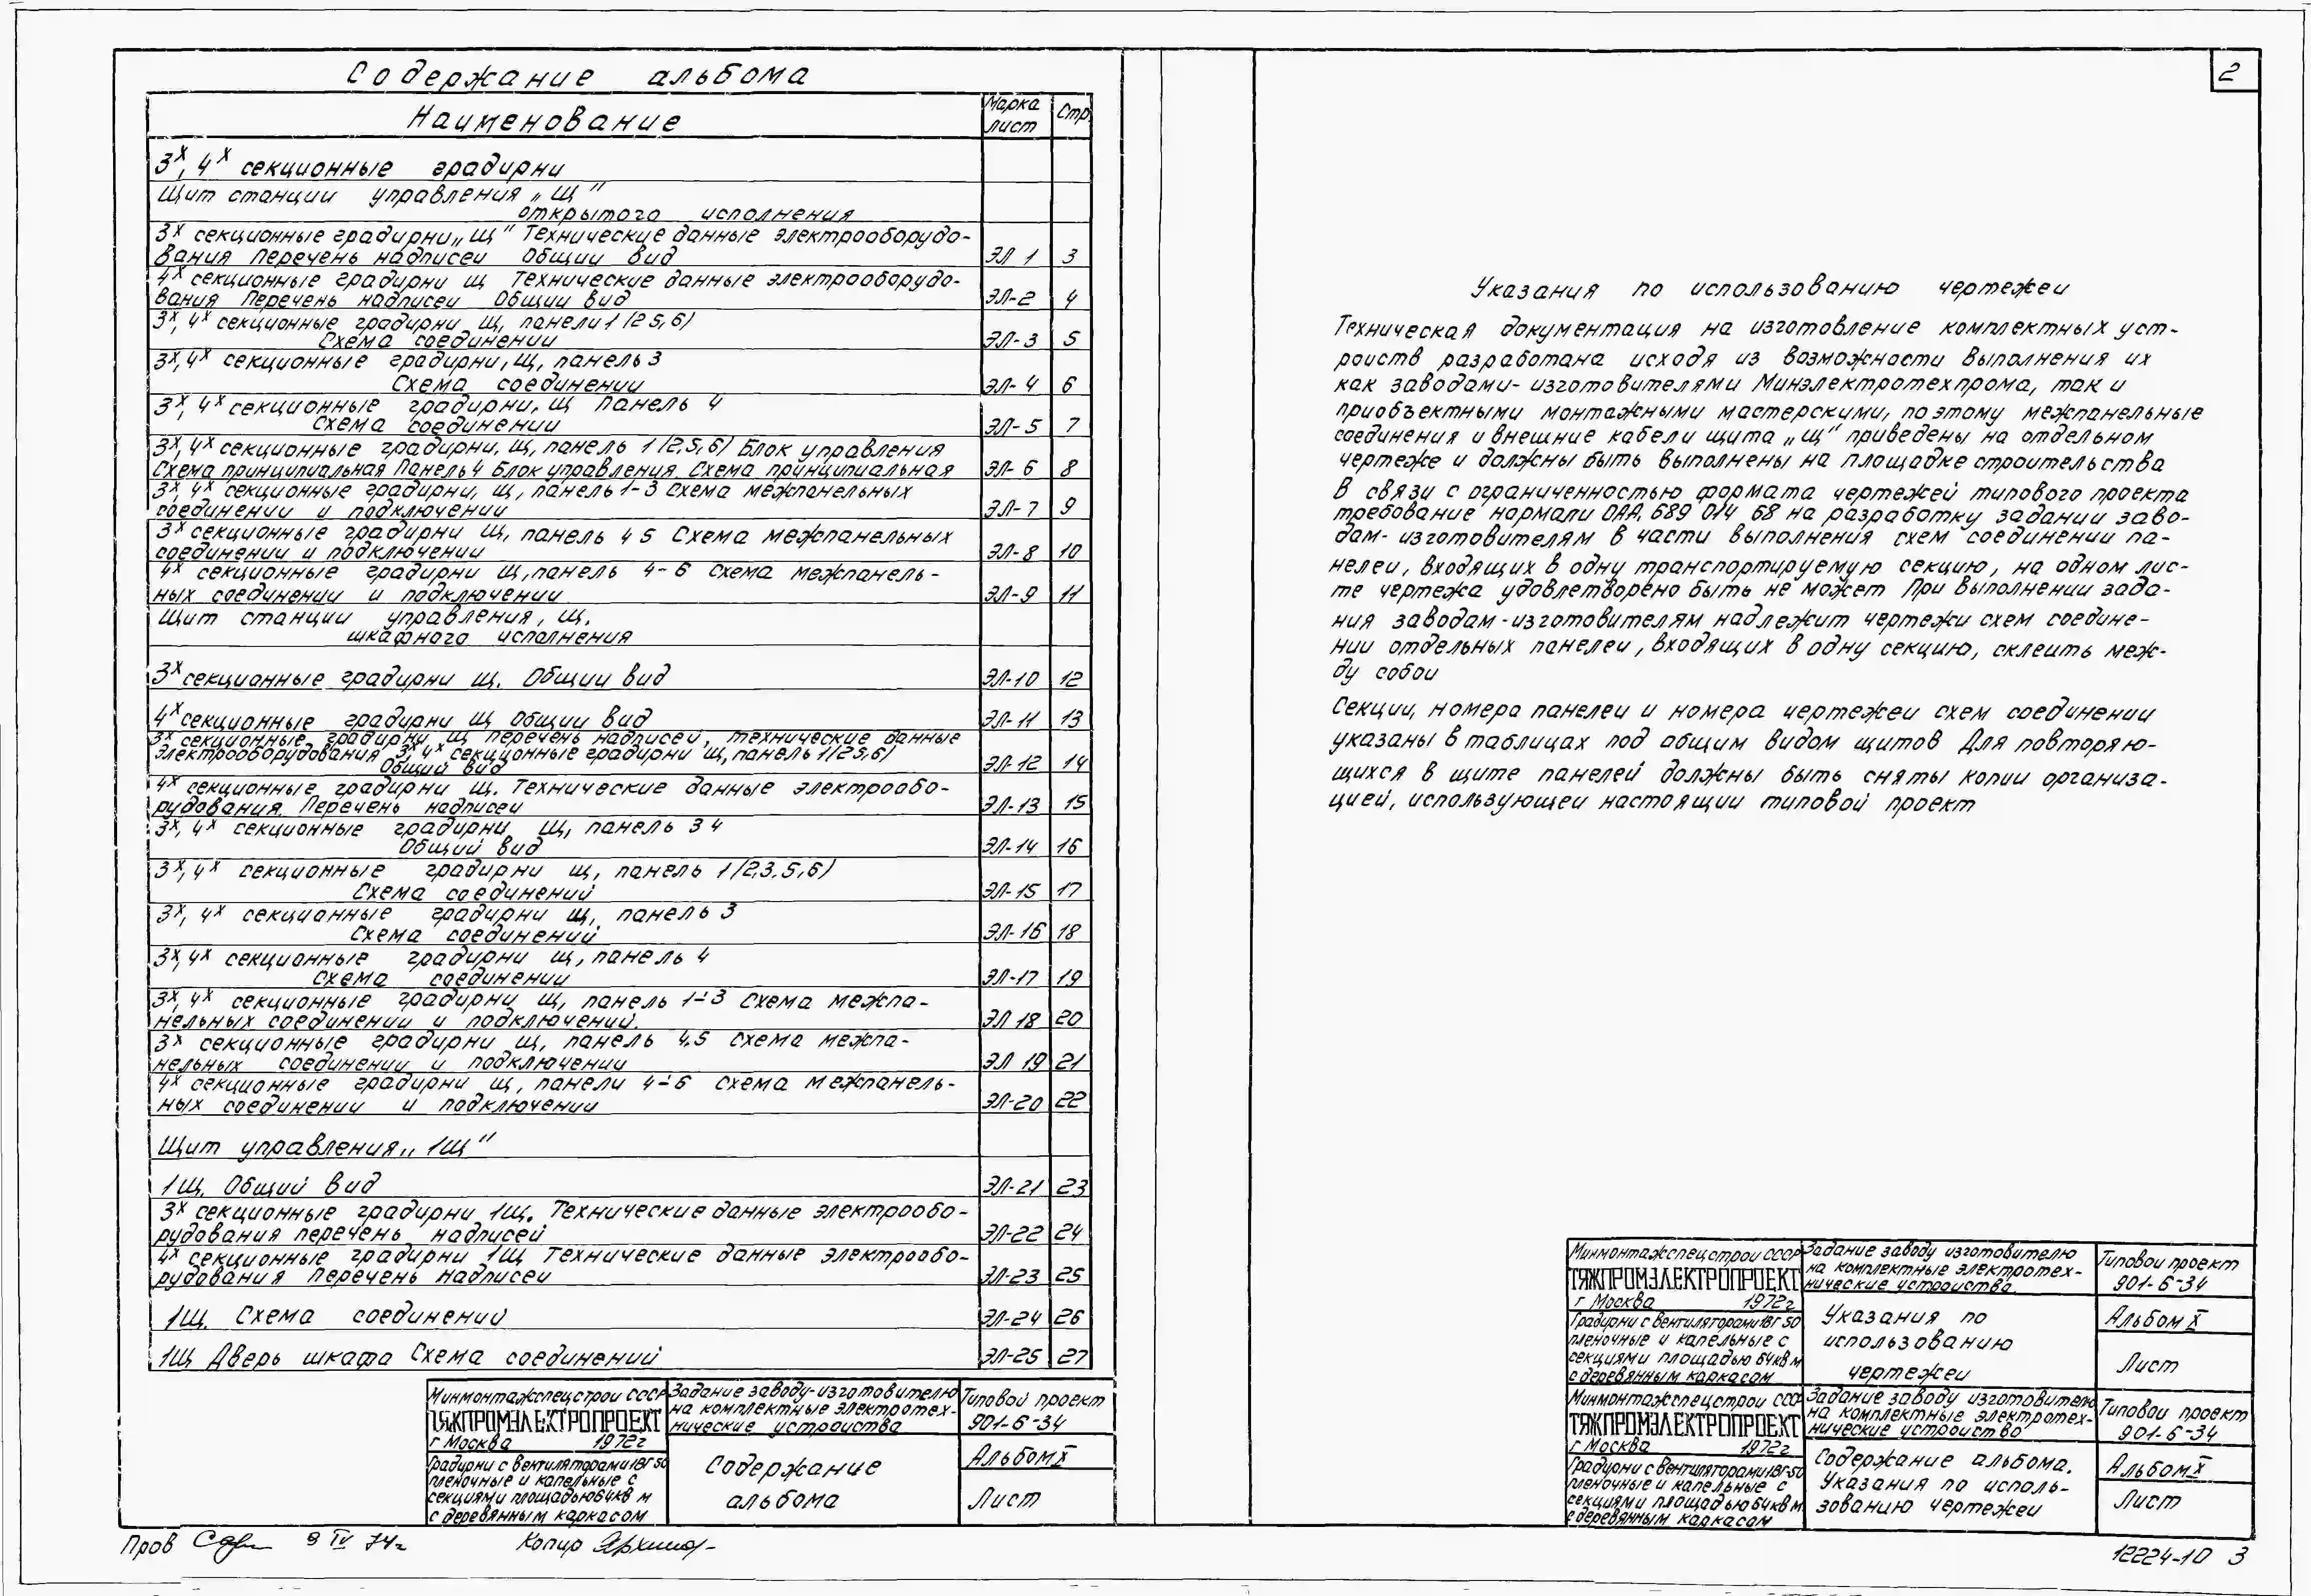 Содержание альбома
Наименование
Марка
лист
Стр.
3х, 4х секционные градирни
Щит станции управления „Щ"
открытого исполнения
3х секционные градирни „Щ" Технические данные электрооборудо-
вания Перечень надписеи Общии вид ЭЛ 1 3
4х секционные градирни Щ Технические данные электрооборудо-
вания Перечень надписеи Общии вид ЭЛ-2 4
3х, 4х секционные градирни Щ, панели 1 (2 5, 6)
Схема соединении ЭЛ-3 5
3х, 4х секционные градирни, Щ, панель 3
Схема соединении ЭЛ-4 6
3х, 4х секционные градирни, Щ панель 4
Схема соединении ЭЛ-5 7
3х, 4х секционные градирни, Щ, панель 1 (2, 5, 6) Блок управления
Схема принципиальная Панель 4 Блок управления Схема принципиальная ЭЛ-6 8
3х, 4х секционные градирни, Щ, панель 1-3 Схема межпанельных
соединении и подключении ЭЛ-7 9
3х секционные градирни Щ, панель 4 5 Схема межпанельных
соединении и подключении ЭЛ-8 10
4х секционные градирни Щ, панель 4-6 схема межпанель-
ных соединении и подключении ЭЛ-9 11
Щит станции управления, Щ,
шкафного исполнения
3х секционные градирни Щ. Общии вид ЭЛ-10 12
4х секционные градирни Щ Общии вид ЭЛ-11 13
3х секционные градирни Щ перечень надписей, технические данные
электрооборудования 3х, 4х секционные градирни Щ, панель 1 (2 5, 6)
Общий вид ЭЛ-12 14
4х секционные градирни Щ. Технические данные электрообо-
рудования. Перечень надписеи ЭЛ-13 15
3х, 4х секционные градирни Щ, панель 3 4
Общий вид ЭЛ-14 16
3х, 4х секционные градирни Щ, панель 1 (2,3,5,6)
Схема соединений ЭЛ-15 17
3х, 4х секционные градирни Щ, панель 3
Схема соединений ЭЛ-16 18
3х, 4х секционные градирни Щ, панель 4
Схема соединении ЭЛ-17 19
3х, 4х секционные градирни Щ, панель 1÷3 Схема межпа-
нельных соединении и подключений. ЭЛ 18 20
3х секционные градирни Щ, панель 4,5 схема межпа-
нельных соединении и подключении ЭЛ 19 21
4х секционные градирни Щ, панели 4÷6 схема межпанель-
ных соединении и подключении ЭЛ-20 22
Щит управления „1Щ"
1Щ. Общий вид ЭЛ-21 23
3х секционные градирни 1Щ. Технические данные электрообо-
рудования перечень надписей ЭЛ-22 24
4х секционные градирни 1Щ Технические данные электрообо-
рудования Перечень надписеи ЭЛ-23 25
1Щ. Схема соединений ЭЛ-24 26
1Щ Дверь шкафа Схема соединений ЭЛ-25 27
Минмонтажспецстрои СССР
ТЯЖПРОМЭЛЕКТРОПРОЕКТ
г Москва 1972г
Градирни с вентиляторами 1ВГ 50
пленочные и капельные с
секциями площадью 64 кв м
с деревянным каркасом
Задание заводу-изготовителю
на комплектные электротех-
нические устроиства
Содержание
альбома
Типовои проект
901-6-34
Альбом X
Лист
Пров 9 IV 74г
Копир
2
Указания по использованию чертежеи
Техническая документация на изготовление комплектных уст-
роиств разработана исходя из возможности выполнения их
как заводами-изготовителями Минэлектротехпрома, так и
приобъектными монтажными мастерскими, поэтому межпанельные
соединения и внешние кабели щита „Щ" приведены на отдельном
чертеже и должны быть выполнены на площадке строительства
В связи с ограниченностью формата чертежей типового проекта
требование нормали ОАА, 689 014 68 на разработку задании заво-
дам-изготовителям в части выполнения схем соединении па-
нелеи, входящих в одну транспортируемую секцию, на одном лис-
те чертежа удовлетворено быть не может При выполнении зада-
ния заводам-изготовителям надлежит чертежи схем соедине-
нии отдельных панелеи, входящих в одну секцию, склеить меж-
ду собои
Секции, номера панелеи и номера чертежеи схем соединении
указаны в таблицах под общим видом щитов Для повторяю-
щихся в щите панелей должны быть сняты копии организа-
цией, использующеи настоящии типовой проект
Минмонтажспецстрои СССР
ТЯЖПРОМЭЛЕКТРОПРОЕКТ
г Москва 1972г
Градирни с вентиляторами 1ВГ 50
пленочные и капельные с
секциями площадью 64 кв м
с деревянным каркасом
Задание заводу изготовителю
на комплектные электротех-
нические устроиства
Указания по
использованию
чертежеи
Типовои проект
901-6-34
Альбом X
Лист
Минмонтажспецстрои СССР
ТЯЖПРОМЭЛЕКТРОПРОЕКТ
г Москва 1972г
Градирни с вентиляторами 1ВГ-50
пленочные и капельные с
секциями площадью 64 кв м
с деревянным каркасом
Задание заводу изготовителю
на комплектные электротех-
нические устроиство
Содержание альбома.
Указания по исполь-
зованию чертежеи
Типовои проект
901-6-34
Альбом X
Лист
12224-10 3